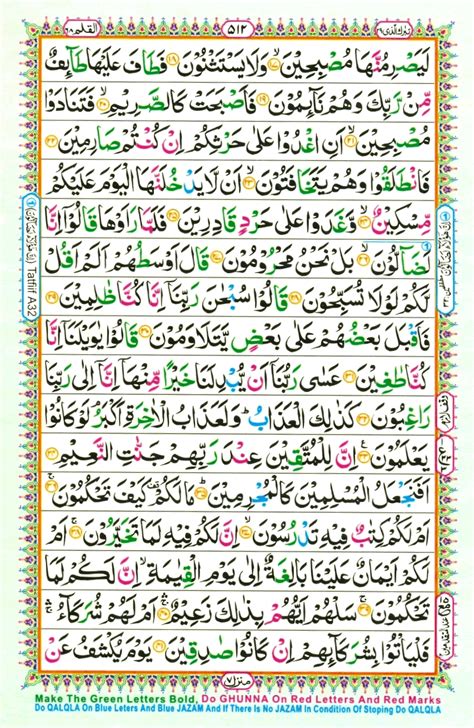 تبٰرك الذی ٢٩ ٥١٢ القلم ٦٨
لَيَصْرِمُنَّهَا مُصْبِحِيْنَ ﴿١٧﴾ وَلَا يَسْتَثْنُوْنَ ﴿١٨﴾ فَطَافَ عَلَيْهَا طَآئِفٌ
مِّنْ رَّبِّكَ وَهُمْ نَآئِمُوْنَ ﴿١٩﴾ فَاَصْبَحَتْ كَالصَّرِيْمِ ﴿٢٠﴾ فَتَنَادَوْا
مُصْبِحِيْنَ ﴿٢١﴾ اَنِ اغْدُوْا عَلٰى حَرْثِكُمْ اِنْ كُنْتُمْ صٰرِمِيْنَ ﴿٢٢﴾
فَانْطَلَقُوْا وَهُمْ يَتَخَافَتُوْنَ ﴿٢٣﴾ اَنْ لَّا يَدْخُلَنَّهَا الْيَوْمَ عَلَيْكُمْ
مِّسْكِيْنٌ ﴿٢٤﴾ وَّغَدَوْا عَلٰى حَرْدٍ قٰدِرِيْنَ ﴿٢٥﴾ فَلَمَّا رَاَوْهَا قَالُوْٓا اِنَّا
لَضَآلُّوْنَ ﴿٢٦﴾ بَلْ نَحْنُ مَحْرُوْمُوْنَ ﴿٢٧﴾ قَالَ اَوْسَطُهُمْ اَلَمْ اَقُلْ
لَّكُمْ لَوْلَا تُسَبِّحُوْنَ ﴿٢٨﴾ قَالُوْا سُبْحٰنَ رَبِّنَآ اِنَّا كُنَّا ظٰلِمِيْنَ ﴿٢٩﴾
فَاَقْبَلَ بَعْضُهُمْ عَلٰى بَعْضٍ يَّتَلَاوَمُوْنَ ﴿٣٠﴾ قَالُوْا يٰوَيْلَنَآ اِنَّا
كُنَّا طٰغِيْنَ ﴿٣١﴾ عَسٰى رَبُّنَآ اَنْ يُّبْدِلَنَا خَيْرًا مِّنْهَآ اِنَّآ اِلٰى رَبِّنَا
رٰغِبُوْنَ ﴿٣٢﴾ كَذٰلِكَ الْعَذَابُ ؕ وَلَعَذَابُ الْاٰخِرَةِ اَكْبَرُ ۘ لَوْ كَانُوْا
يَعْلَمُوْنَ ﴿٣٣﴾ اِنَّ لِلْمُتَّقِيْنَ عِنْدَ رَبِّهِمْ جَنّٰتِ النَّعِيْمِ ﴿٣٤﴾
اَفَنَجْعَلُ الْمُسْلِمِيْنَ كَالْمُجْرِمِيْنَ ﴿٣٥﴾ مَا لَكُمْ كَيْفَ تَحْكُمُوْنَ ﴿٣٦﴾
اَمْ لَكُمْ كِتٰبٌ فِيْهِ تَدْرُسُوْنَ ﴿٣٧﴾ اِنَّ لَكُمْ فِيْهِ لَمَا تَخَيَّرُوْنَ ﴿٣٨﴾ اَمْ
لَكُمْ اَيْمَانٌ عَلَيْنَا بَالِغَةٌ اِلٰى يَوْمِ الْقِيٰمَةِ ۙ اِنَّ لَكُمْ لَمَا
تَحْكُمُوْنَ ﴿٣٩﴾ سَلْهُمْ اَيُّهُمْ بِذٰلِكَ زَعِيْمٌ ﴿٤٠﴾ اَمْ لَهُمْ شُرَكَآءُ ۛ
فَلْيَاْتُوْا بِشُرَكَآئِهِمْ اِنْ كَانُوْا صٰدِقِيْنَ ﴿٤١﴾ يَوْمَ يُكْشَفُ عَنْ
منزل ٧
Make The Green Letters Bold, Do GHUNNA On Red Letters And Red Marks
Do QALQLA On Blue Leters And Blue JAZAM And If There Is No JAZAM In Condition Of Stoping Do QALQLA
Tatfiif A32